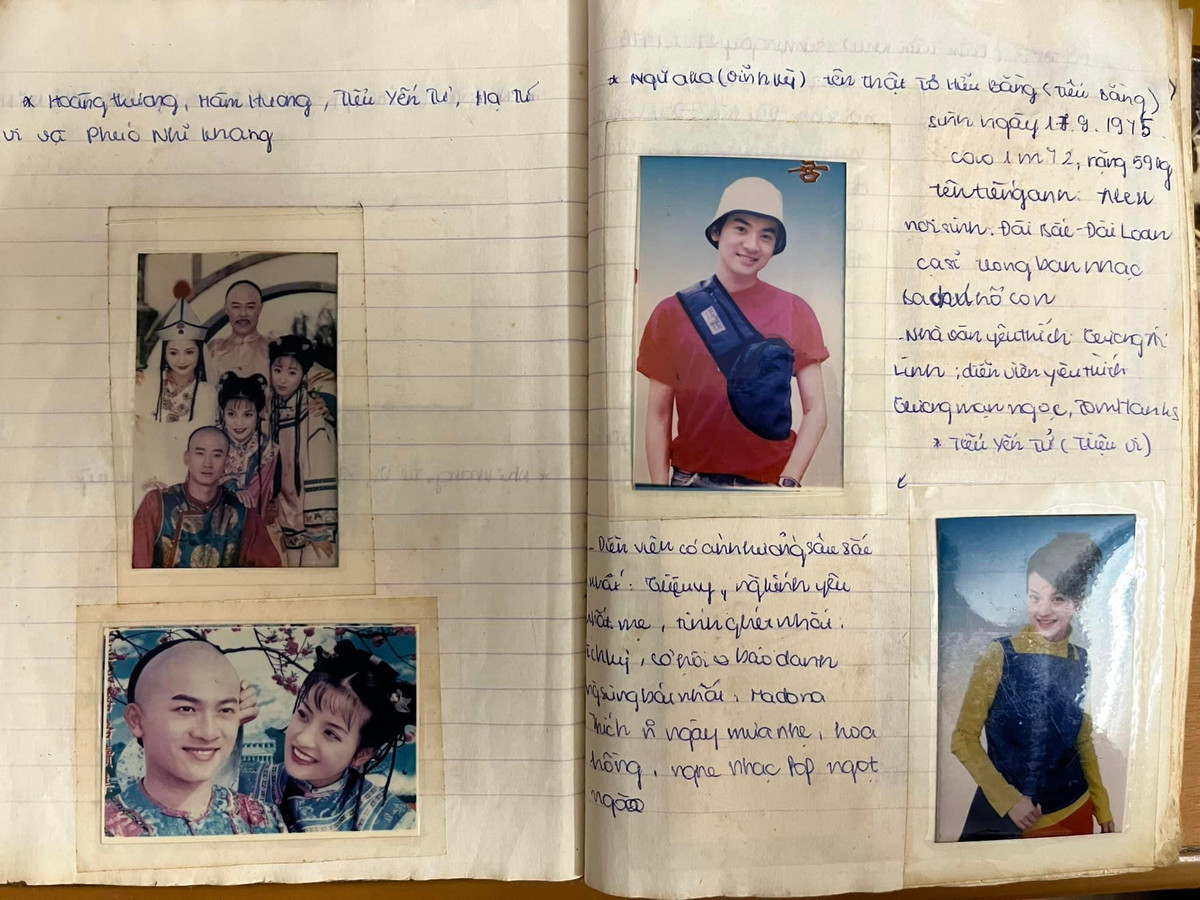 * Hoàng thượng, Hàm Hương, Tiểu Yến Tử, Hạ Tử
vi và Phúc Nhĩ Khang
* Ngũ aka (Vĩnh Kỳ) tên thật Tô Hữu Bằng (Tiểu Bằng)
sinh ngày 17.9.1975
cao 1m72, nặng 59kg
tên tiếng anh: Alec
nơi sinh. Đài Bắc - Đài Loan
ca sĩ trong ban nhạc
hổ con
- Nhà văn yêu thích: Trương
Linh; diễn viên yêu thích
Trương mạn ngọc, Tom Hanks
* Tiểu Yến Tử (Triệu Vi)
- Diễn viên có ảnh hưởng sâu sắc
nhất: Triệu vy, ng kính yêu
nhất mẹ, tính ghét nhất:
ích kỷ, cơ hội báo danh
ng sùng bái nhất: Madona
Thích n~ ngày mưa nhẹ, hoa
hồng, nghe nhạc Pop ngọt
ngào